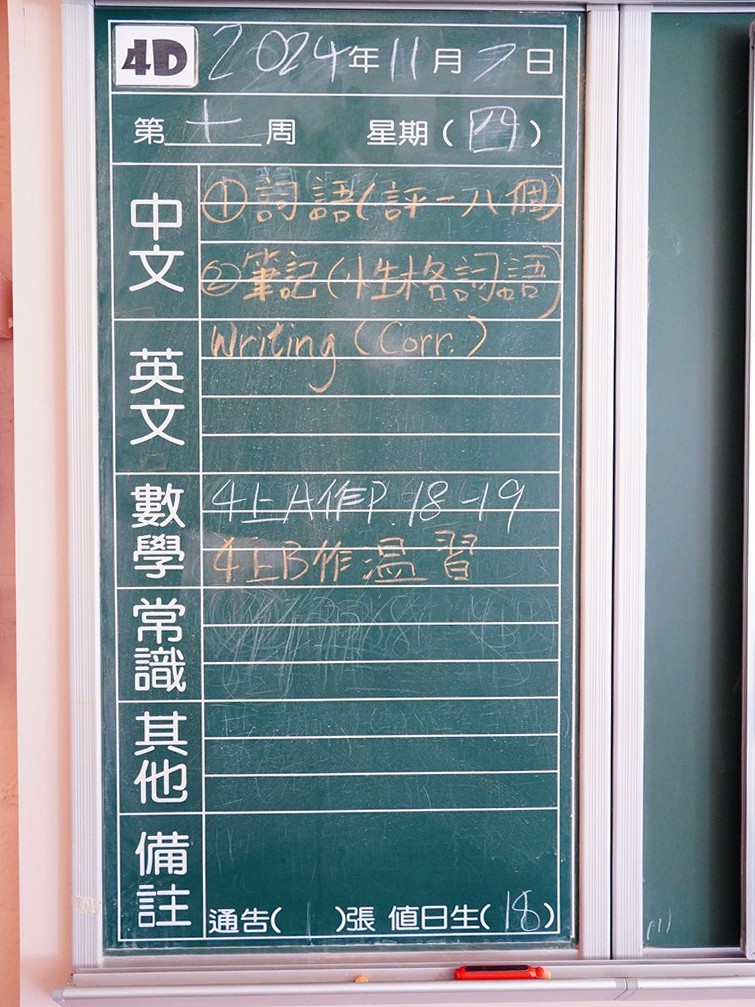 4D 2024年11月7日
第十周 星期(四)
中文
①詞語(評一八個)
②筆記(性格詞語)
英文
Writing (Corr.)
數學
4上A作P.18-19
4上B作温習
常識
其他
備註
通告( )張 值日生(18)